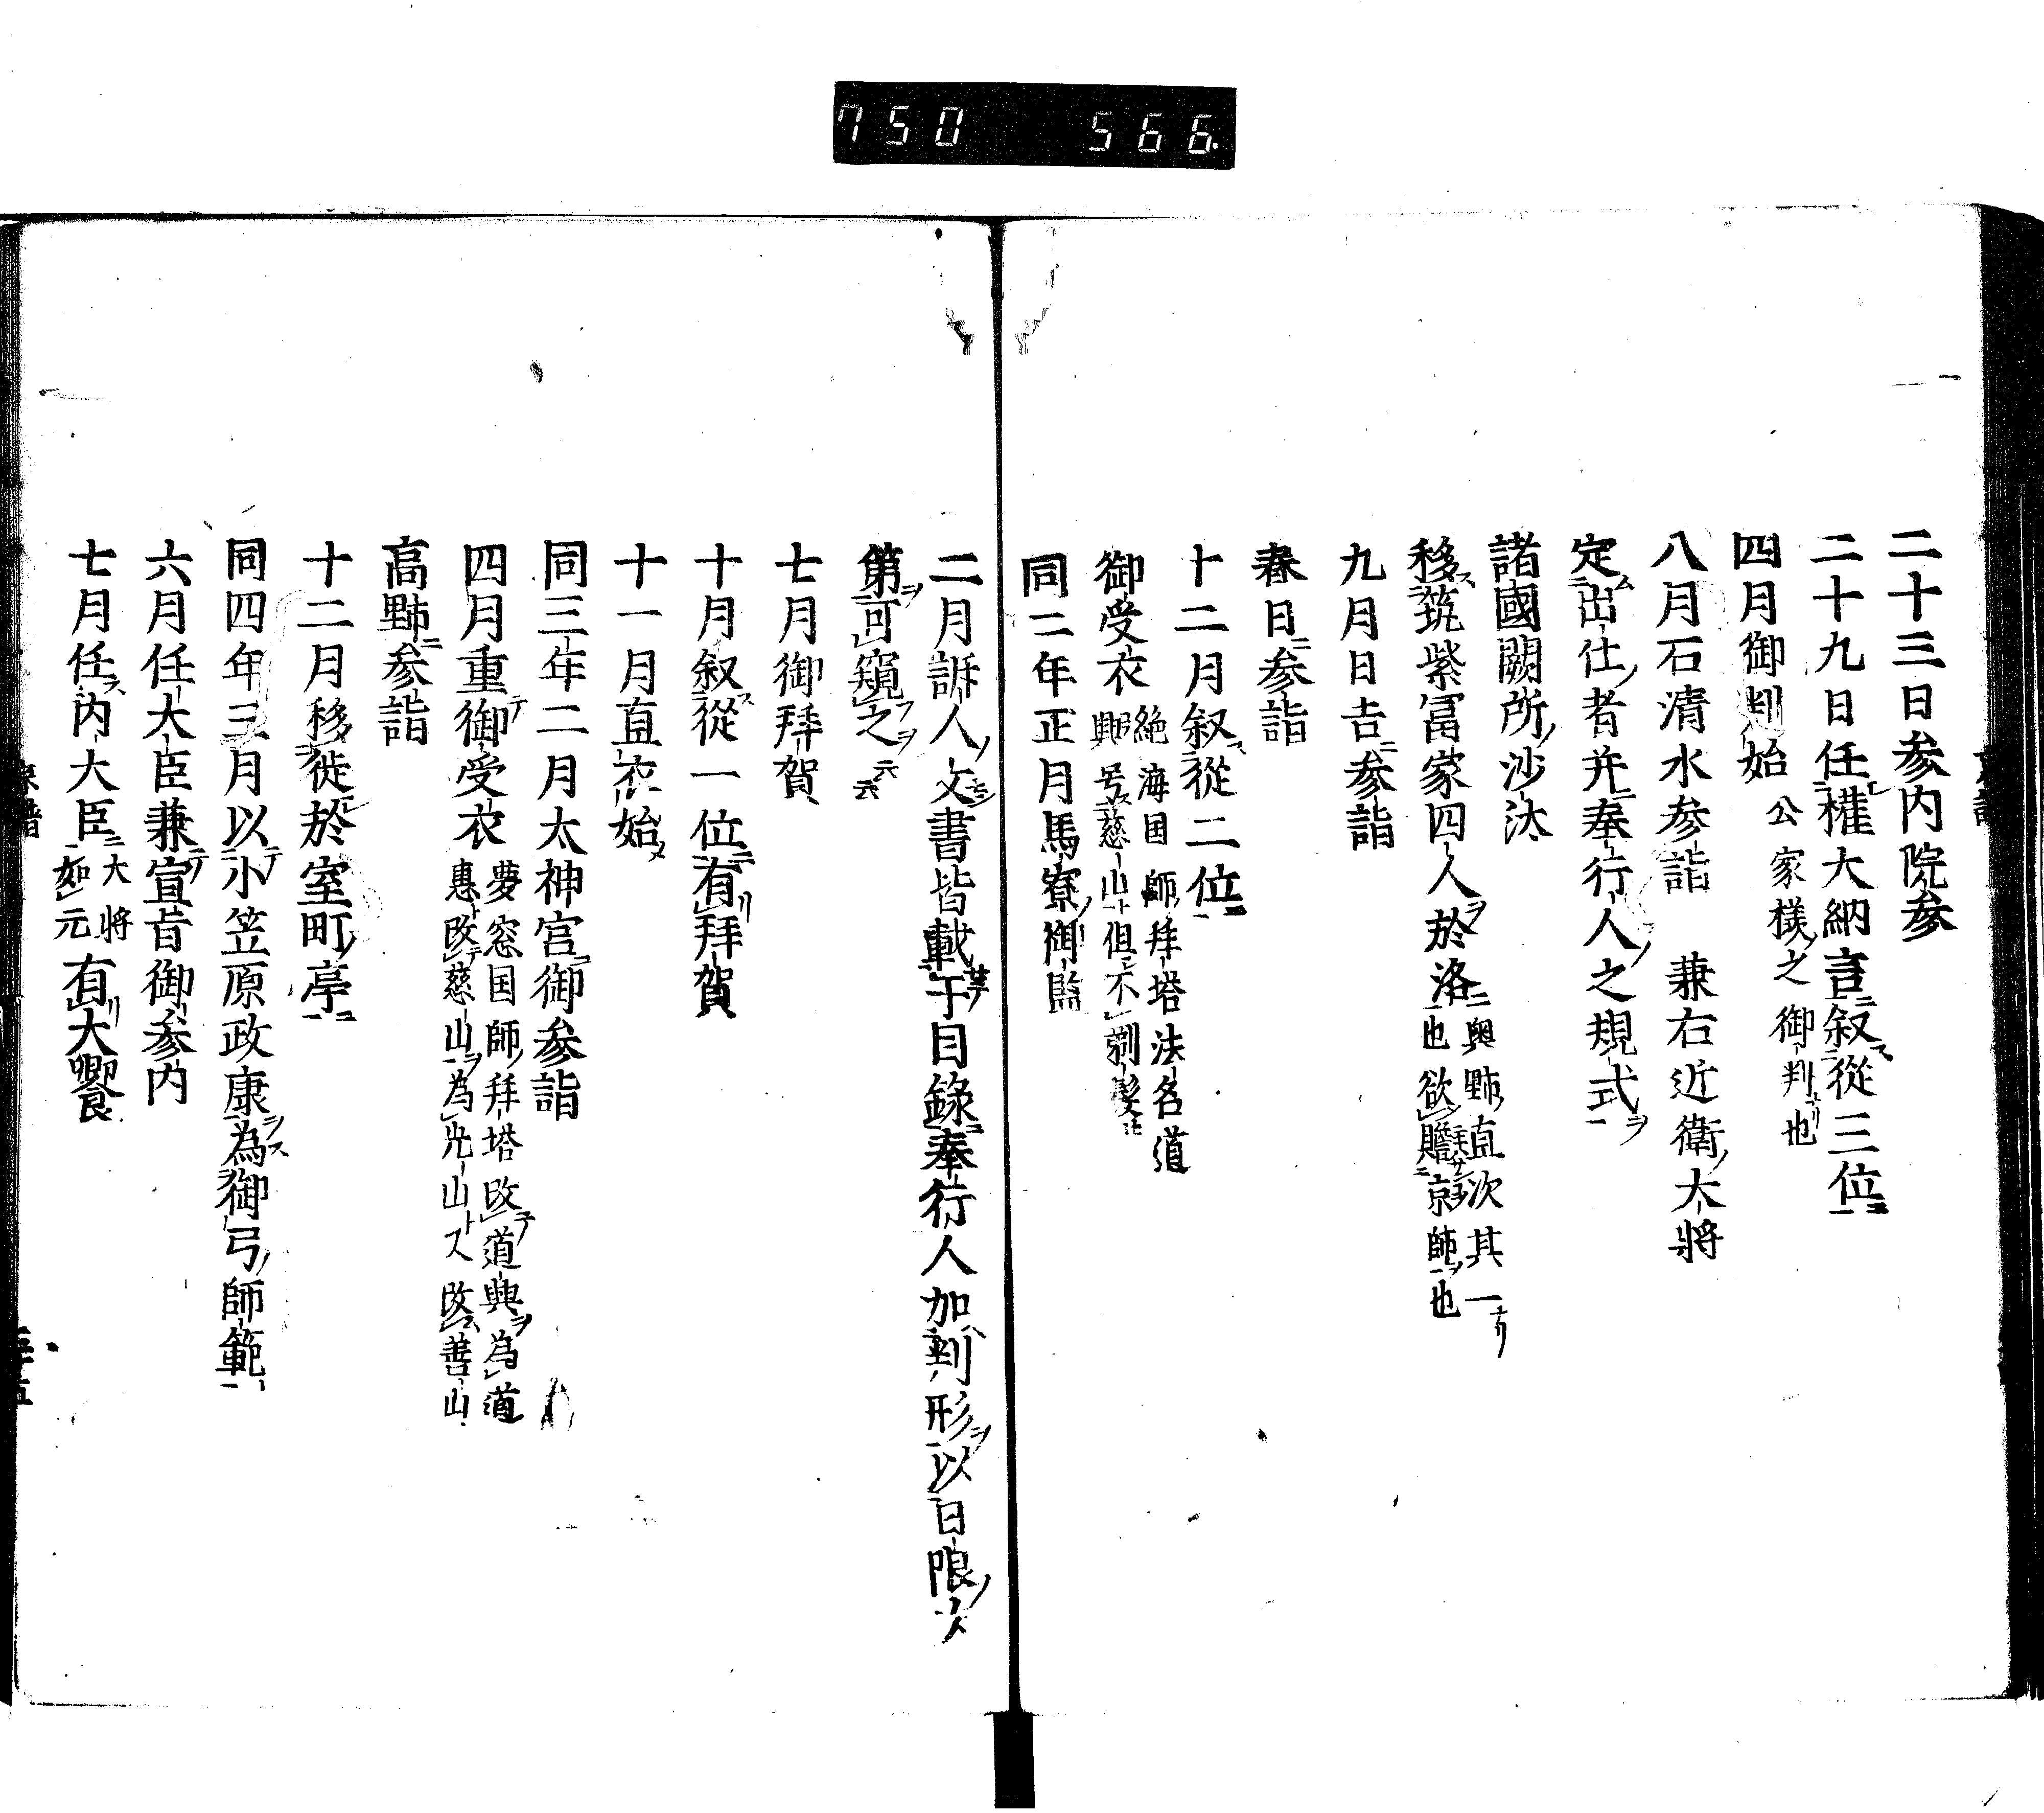 750 566.
二十三日参内院参
二十九日任權大納言叙從三位
四月御判始 公家様之御判也
八月石清水参詣 兼右近衛大將
定出仕者并奉行人之規式
諸國闕所沙汰
移筑紫冨家四人於洛 奥㱏直次其一
也欲贍京師也
九月日吉参詣
春日参詣
十二月叙從二位
御受衣 絶海国師拜塔法名道
興号慈山但不剃髮
同二年正月馬寮御監
二月訴人文書皆載于目錄奉行人加判形以日限次
第可窺之云云
七月御拜賀
十月叙從一位有拜賀
十一月直衣始
同三年二月太神宮御参詣
四月重御受衣 夢窓国師拜塔改道興為道
惠改慈山為山又改善山
高野参詣
十二月移徙於室町亭
同四年三月以小笠原政康為御弓師範
六月任大臣兼宣旨御参内
七月任内大臣 大將
如元 有大饗